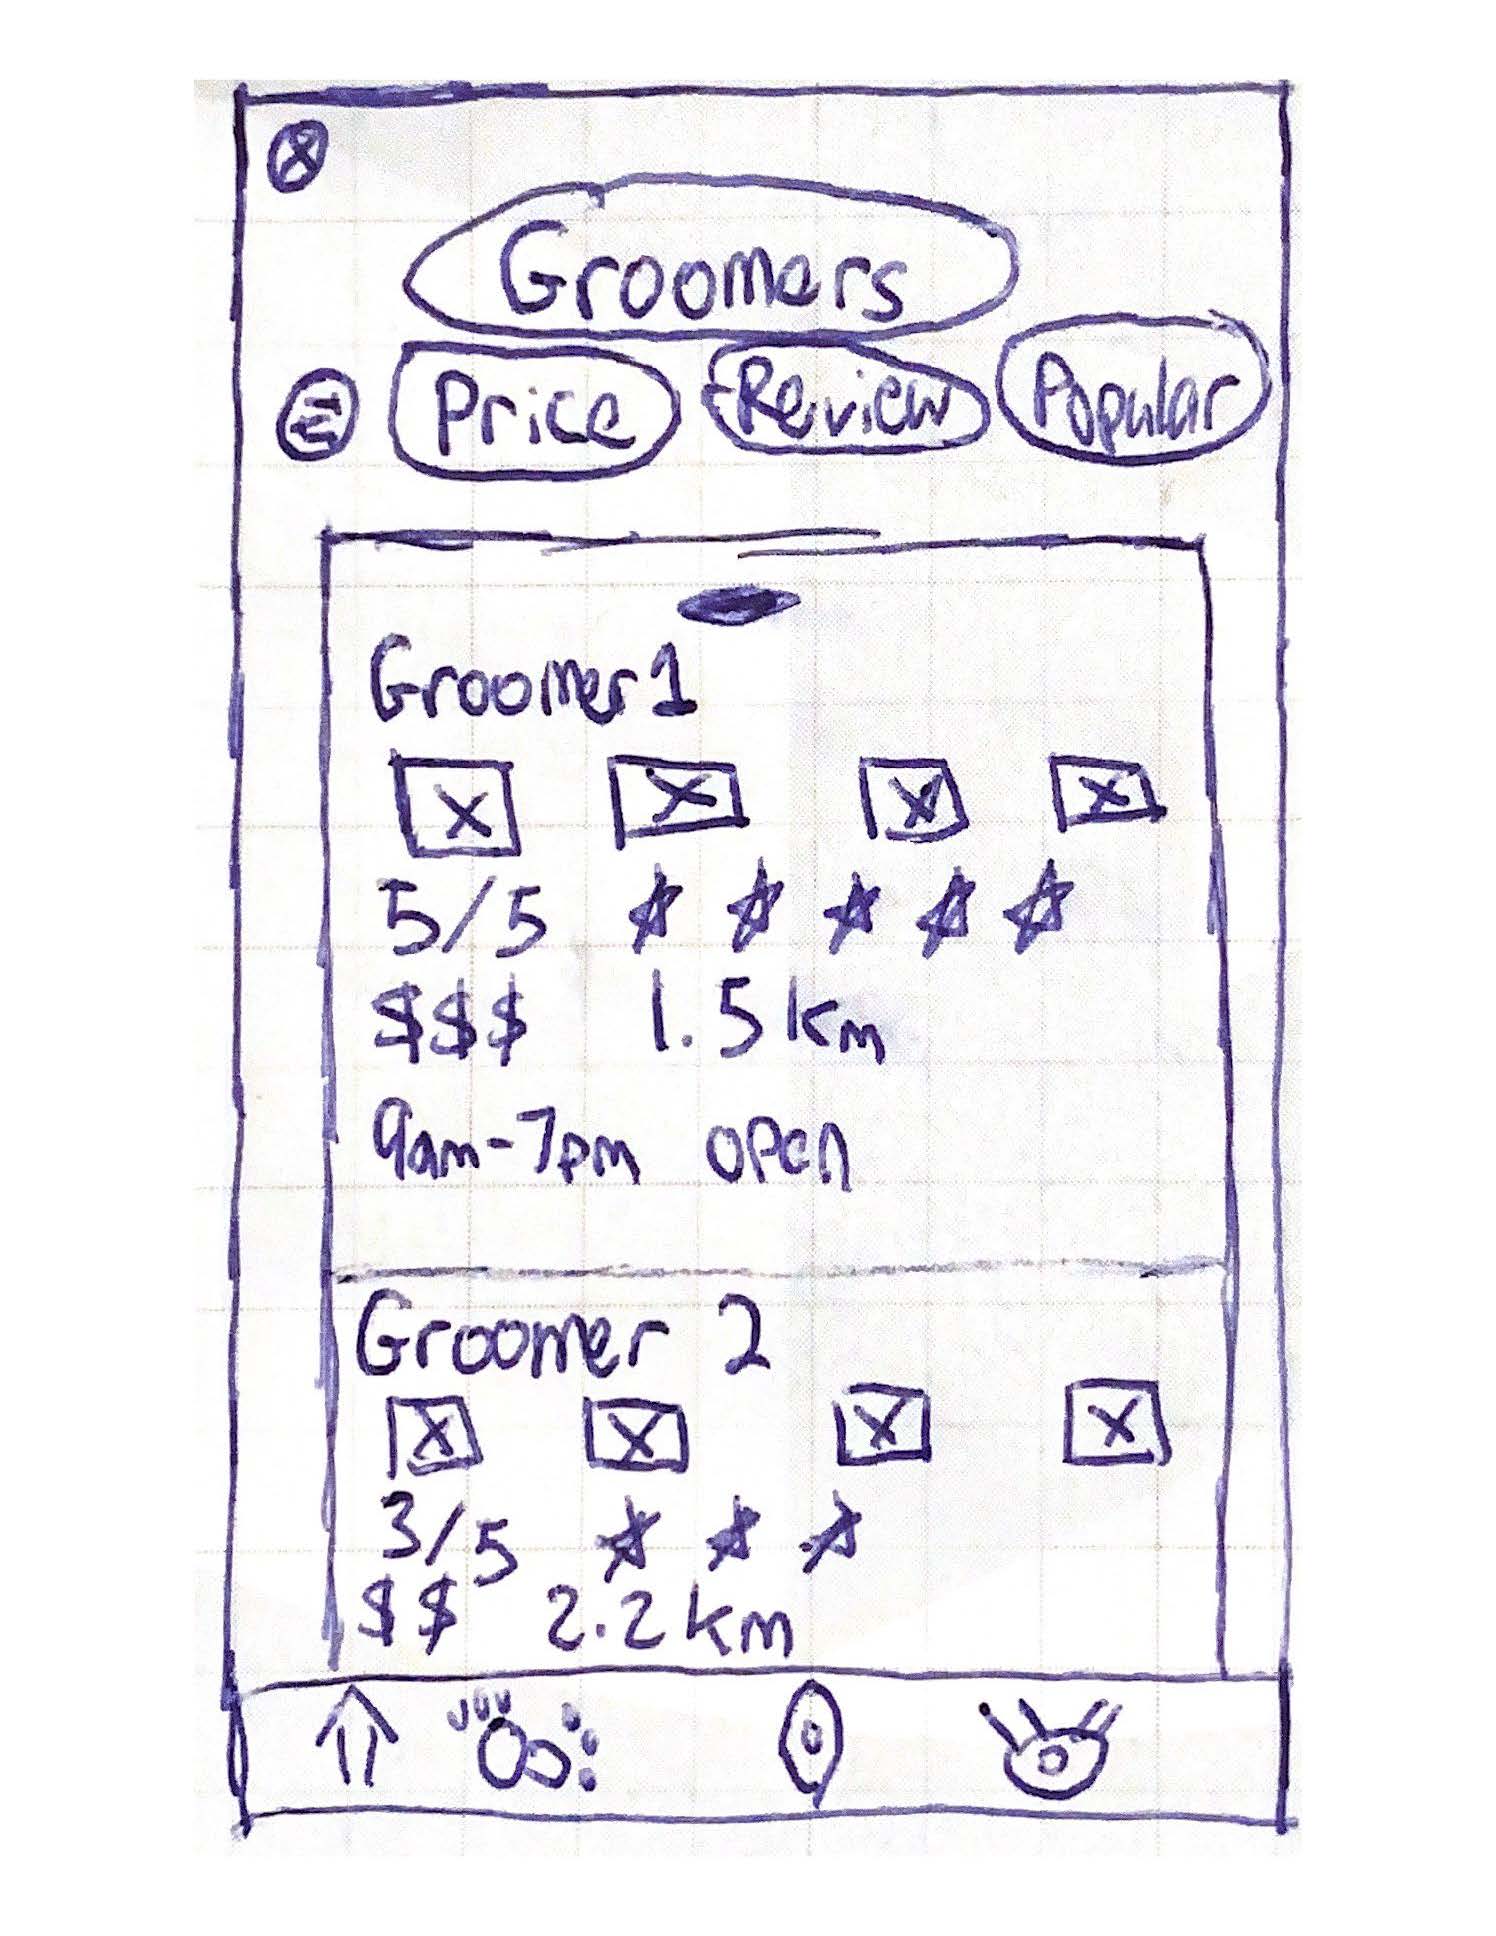 Groomers
Price Review Popular
Groomer 1
5/5
$$$ 1.5 km
9am-7pm open
Groomer 2
3/5
$$ 2.2 km